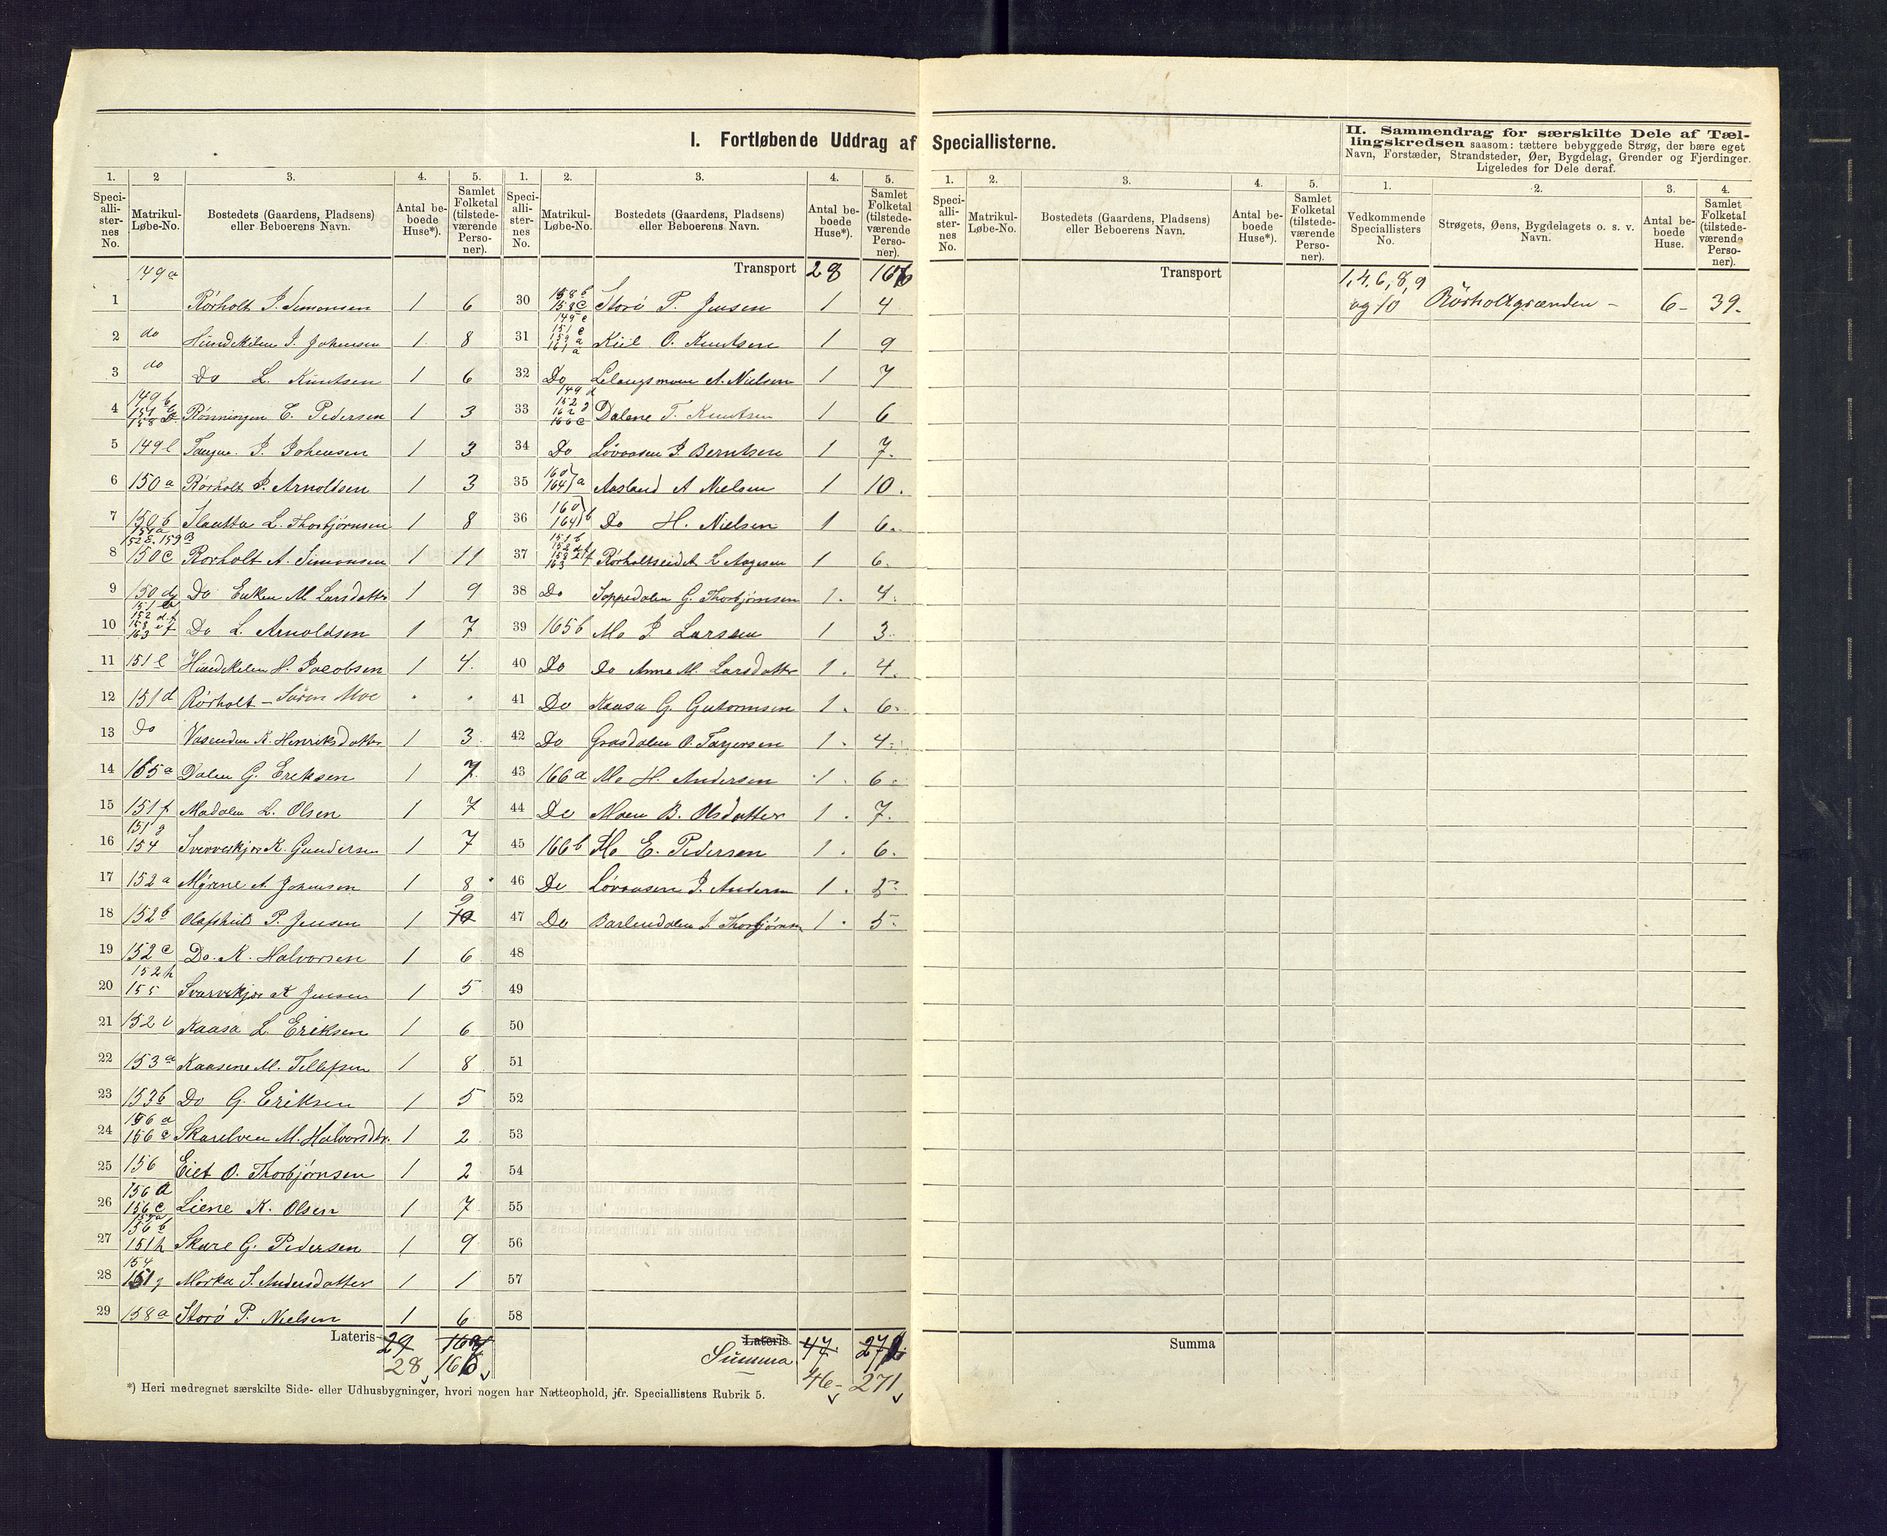 I. Fortløbende Uddrag af Speciallisterne.
II. Sammendrag for særskilte Dele af Tællingskredsen saasom: tættere bebyggede Strøg, der bære eget
Navn, Forstæder, Strandsteder, Øer, Bygdelag, Grender og Fjerdinger.
Ligeledes for Dele deraf.
1. 2 3. 4. 5.
Specialli­sternes No. Matrikul-Løbe-No. Bostedets (Gaardens, Pladsens) eller Beboerens Navn. Antal beboede Huse*). Samlet Folketal (tilstedeværende Personer).
149a
1 Rørholt J. Simonsen 1 6
2 do Hundekilen J. Johensen 1 8
3 do Do L. Knutsen 1 6
4 149b Rønningen E. Pedersen 1 3
5 149l Tangen J. Johensen 1 3
6 150a Rørholt J. Arnoldsen 1 3
7 150b Slaatta L. Thorbjørnsen 1 8
8 150c Rørholt A. Simonsen 1 11
9 150d Do Enken M. Larsdatter 1 9
10 Do L. Arnoldsen 1 7
11 151l Hundekilen H. Jacobsen 1 4.
12 151d Rørholt – Søren Moe . .
13 Do Vasenden K. Henriksdatter 1 3
14 165c Dalen G. Eriksen 1 7
15 151f Madalen L. Olsen 1 7
151g
16 154 K. Gundersen 1 7
17 152a Myrene A. Johensen 1 8
18 152b Olafskiil P. Jensen 1 9
19 152c Do. K. Halvorsen 1 6
152h
20 155 K Jensen 1 5
21 152i Kaasa L. Eriksen 1 6
22 153a Kaasene M. Tellefsen 1 8
23 153b Do G. Eriksen 1 5
156a
24 156c Skarelven M. Halvorsdtr. 1 2
25 156 Eiet O. Thorbjørnsen 1 2
156d
26 156c Liene K. Olsen 1 7
156b
27 151h Skare G. Pedersen 1 9
154
28 151g Mørka S. Andersdatter 1 1
29 158a Storø P. Nielsen 1 6
Lateris 29
28 166
1. 2. 3. 4. 5.
Specialli­sternes No. Matrikul-Løbe-No. Bostedets (Gaardens, Pladsens) eller Beboerens Navn. Antal beboede Huse*). Samlet Folketal (tilstedeværende Personer).
Transport 28 166
158b
30 158c Storø P. Jensen 1 4
149e
151e
31 159a Kiil O. Knutsen 1 9
161a
32 Do Lelangsmoen A. Nielsen 1 7
149d
152g
33 162g Dalene T. Knutsen 1 6
166c
34 Do Løvaasen J. Berntsen 1 7.
35 160 164 a Aasland A Nielsen 1 10.
36 160 164 b Do H. Nielsen 1 6.
151b
37 163 Rørholtseidet L Aagesen 1 6.
38 Do Soppedalen G. Thorbjørnsen 1. 4.
39 165b Mo J. Larssen 1 3.
40 Do Do Anne M. Larsdatter 1. 4.
41 Do Kaasa G. Gutormsen 1. 6.
42 Do Grasdalen O. Torjersen 1. 4.
43 166a Mo H. Andersen 1. 6.
44 Do Moen B. Olsdatter 1. 7.
45 166b Mo E. Pedersen 1. 6.
46 Do Løvaasen J. Andersen 1. 5
47 Do Barlindalen J. Thorbjørnsen 1. 5.
48
49
50
51
52
53
54
55
56
57
58
Lateris 47
Summa 46 271
*) Heri medregnet særskilte Side- eller Udhusbygninger, hvori nogen har Natteophold, jfr. Speciallistens Rubrik 5.
1. 2. 3. 4. 5.
Specialli­sternes No. Matrikul-Løbe-No. Bostedets (Gaardens, Pladsens) eller Beboerens Navn. Antal beboede Huse*). Samlet Folketal (tilstedeværende Personer).
Transport
Summa
1. 2. 3. 4.
Vedkommende Speciallisters No. Strøgets, Øens, Bygdelagets o. s. v. Navn. Antal beboede Huse. Samlet Folketal (tilstedeværende Personer).
1, 4, 6, 8, 9
og 10 Rørholtgrænden – 6 – 39.